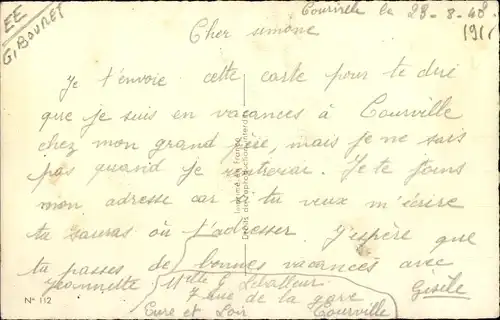 EE
G. BOURET
Courville le 28-8-48.
191
Cher simone
Je t'envoie cette carte pour te dire
que je suis en vacances à Courville
chez mon grand père, mais je ne sais
pas quand je rentrerai. Je te joins
mon adresse car si tu veux m'écrire
tu sauras où t'adresser. J'espère que
tu passes de bonnes vacances avec
Jeannette
Gisèle
Mlle G
7 rue de la gare
Courville
Eure et Loir
N° 112
Imprimé en France
Droits de reproduction interdits